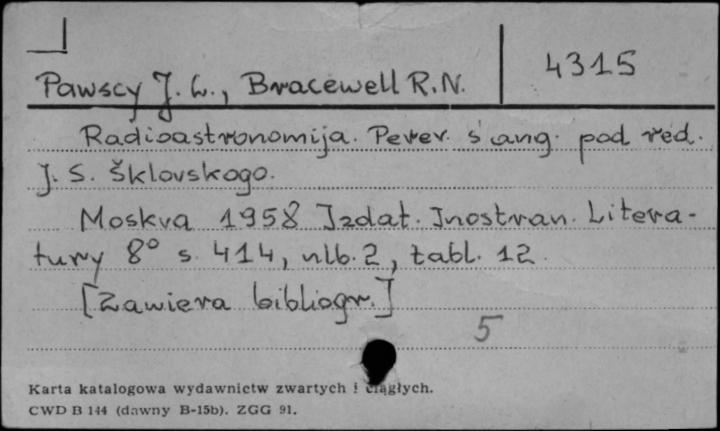 4315
Pawscy J. L., Bracewell R.N.
Radioastronomija. Perev. s ang. pod red.
J. S. Šklovskogo.
Moskva 1958 Izdat. Inostran. Litera-
tury 8° s. 414, nlb. 2, tabl. 12.
[Zawiera bibliogr.]
5
Karta katalogowa wydawnictw zwartych i ciągłych.
CWD B 144 (dawny B-15b). ZGG 91.